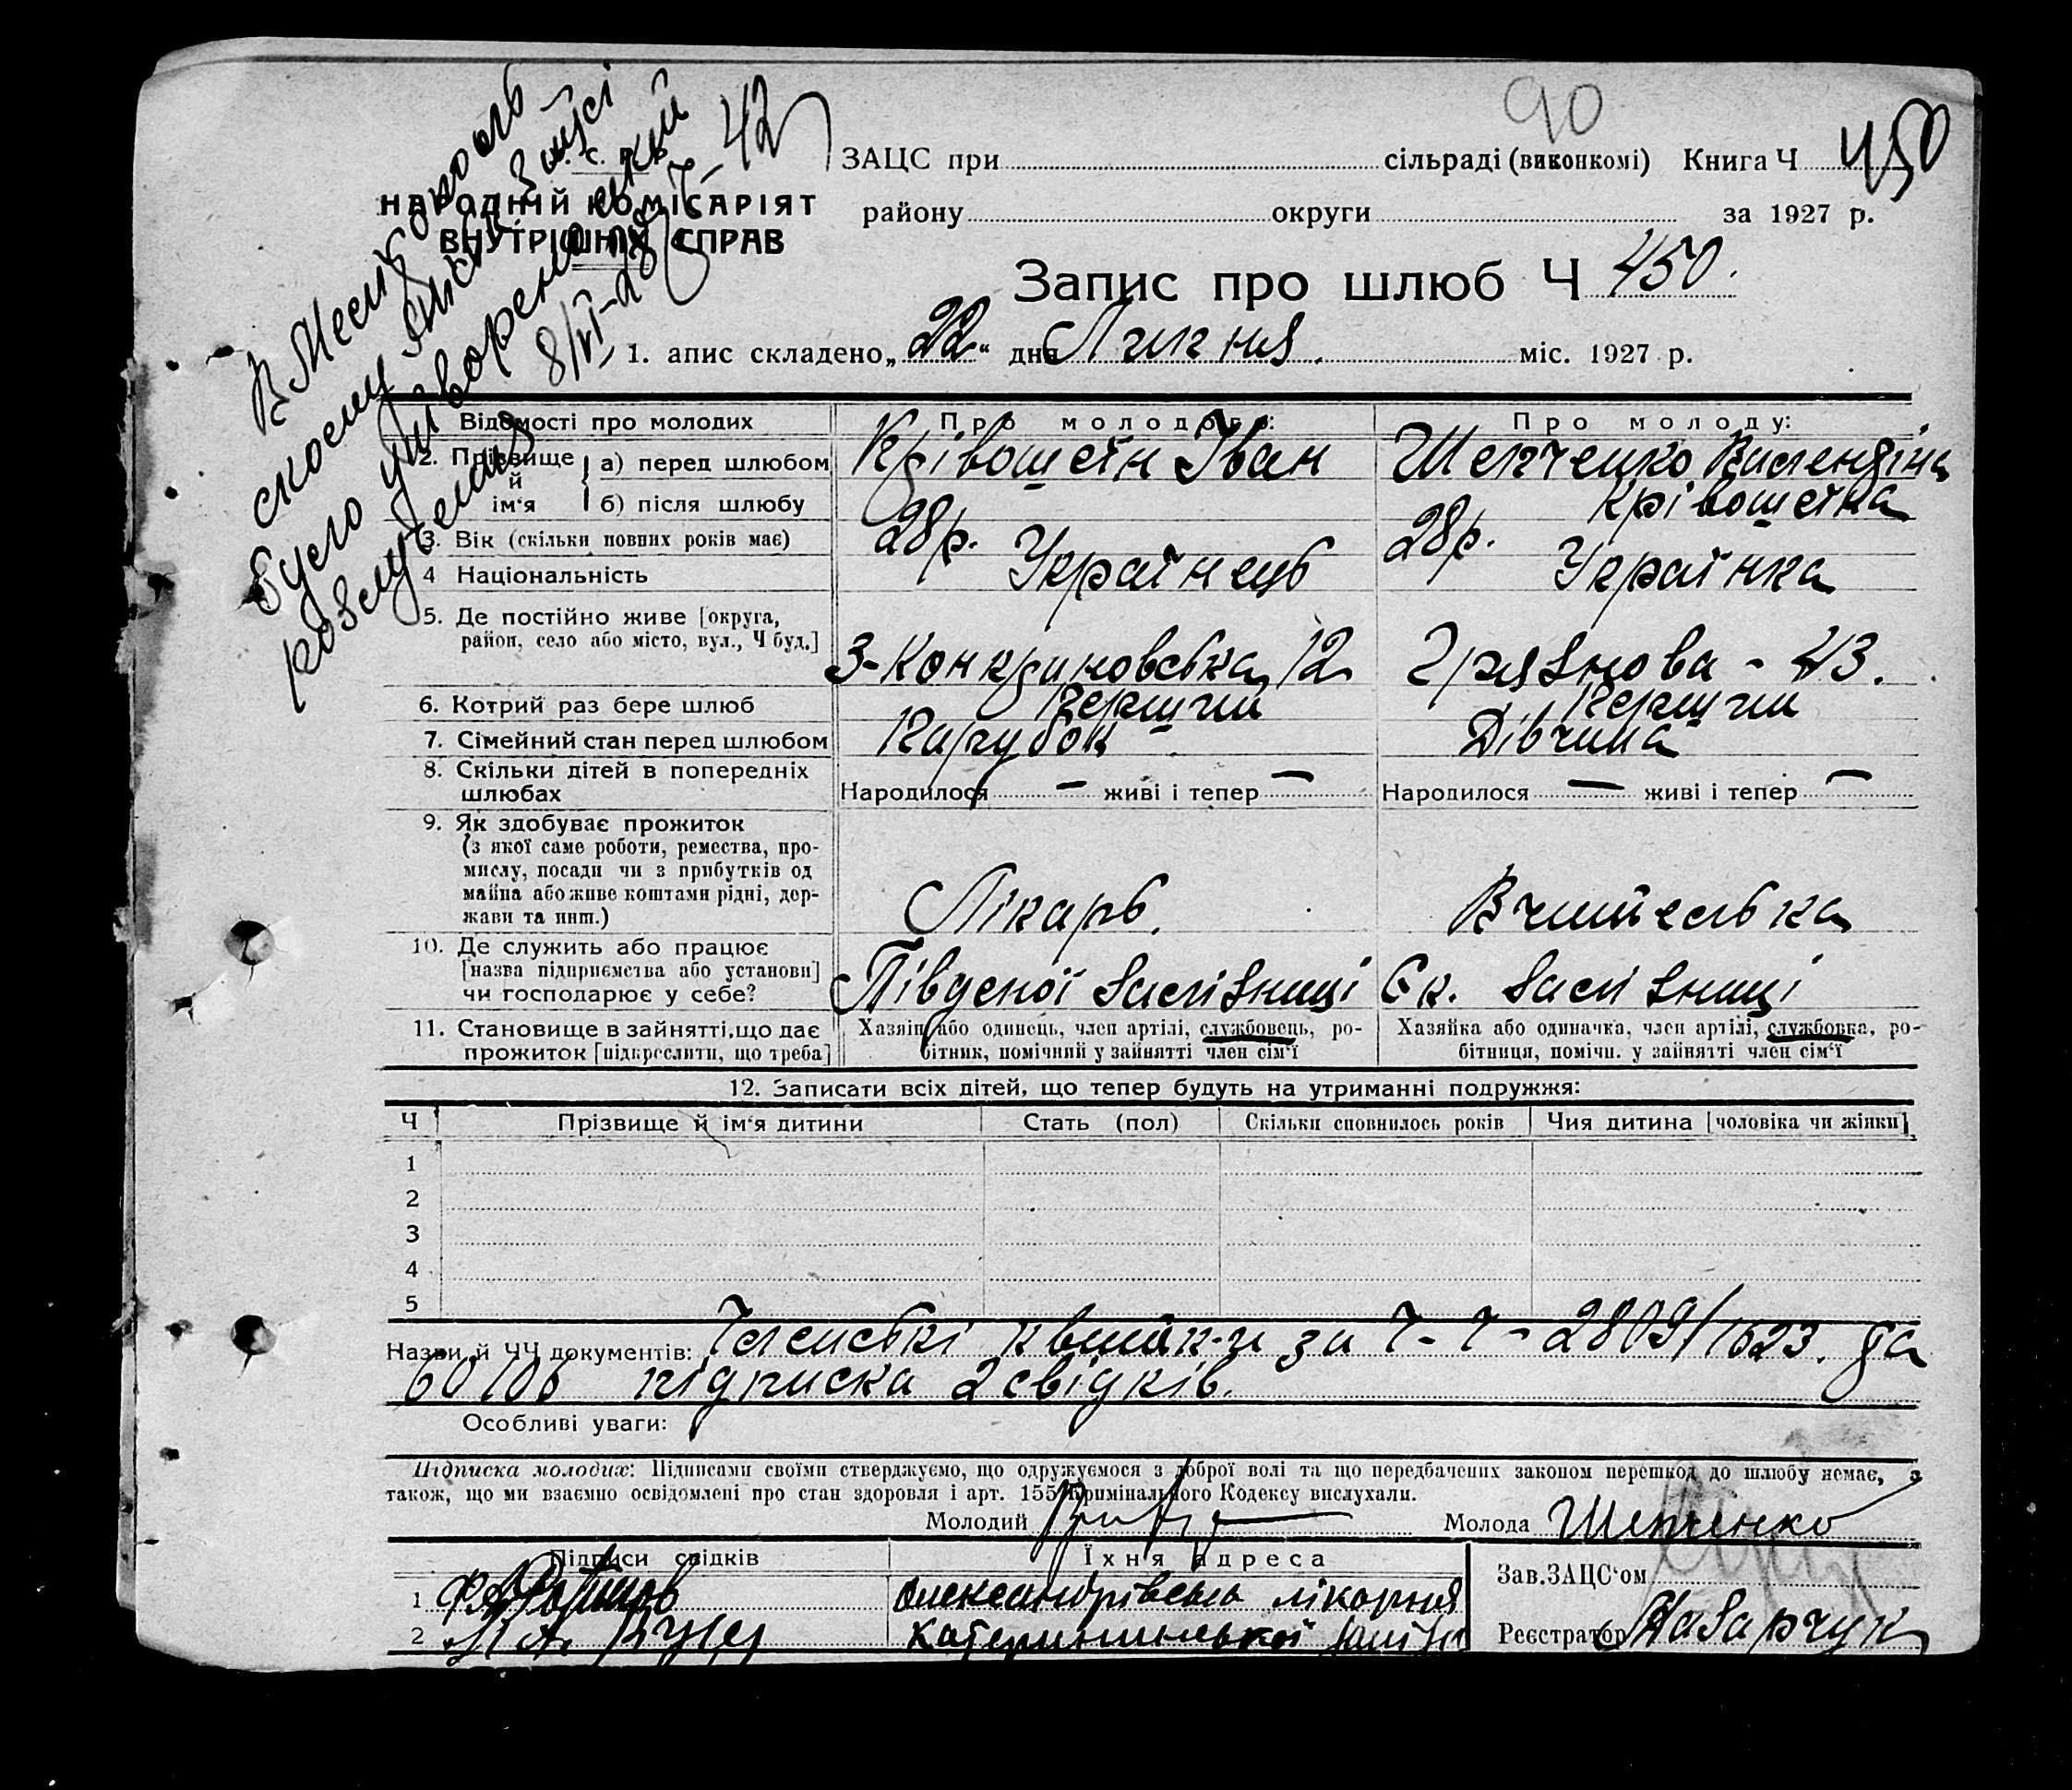 90
ЗАЦС при сільраді (виконкомі) Книга Ч 450
НАРОДНІЙ КОМІСАРІЯТ
ВНУТРІШНІХ СПРАВ
району округи за 1927 р.
Запис про шлюб Ч 450.
8/VI-28
1. апис складено „22“ дня Липня. міс. 1927 р.
Відомості про молодих Про молодого: Про молоду:
2. Прізвище й ім'я а) перед шлюбом Крівошеїн Іван Шевченко Валендіна
б) після шлюбу Крівошеїна
3. Вік (скільки повних років має) 28р. 28р.
4 Національність Українець Українка
5. Де постійно живе [округа,
район, село або місто, вул., Ч буд.] 12 Грязнова - 43.
6. Котрий раз бере шлюб Перший Перший
7. Сімейний стан перед шлюбом Парубок Дівчина
8. Скільки дітей в попередніх
шлюбах Народилося — живі і тепер — Народилося — живі і тепер —
9. Як здобуває прожиток
(з якої саме роботи, ремества, про-
мислу, посади чи з прибутків од
майна або живе коштами рідні, дер-
жави та инш.) Лікарь. Вчителька
10. Де служить або працює
[назва підприємства або установи]
чи господарює у себе? Південої залізниці Єк. залізниці
11. Становище в зайнятті, що дає
прожиток [підкреслити, що треба]
Хазяїн або одинець, член артілі, службовець, ро-
бітник, помічний у зайнятті член сім'ї
Хазяйка або одиначка, член артілі, службовка, ро-
бітниця, помічн. у зайнятті член сім'ї
12. Записати всіх дітей, що тепер будуть на утриманні подружжя:
Ч Прізвище й ім'я дитини Стать (пол) Скільки сповнилось років Чия дитина [чоловіка чи жінки]
1
2
3
4
5
Назви й ЧЧ документів: Членські квитк-и за Ч-Ч-2809/1623. да
60106 підписка 2 свідків.
Особливі уваги:
Підписка молодих: Підписами своїми стверджуємо, що одружуємося з доброї волі та що передбачених законом перешкод до шлюбу немає, а
також, що ми взаємно освідомлені про стан здоровля і арт. 155 Кримінального Кодексу вислухали.
Молодий Молода Шевченко
Підписи свідків Їхня адреса
Зав. ЗАЦС'ом
1 Олександрівська лікарня
2 Катерининської
Реєстратор Назарчук